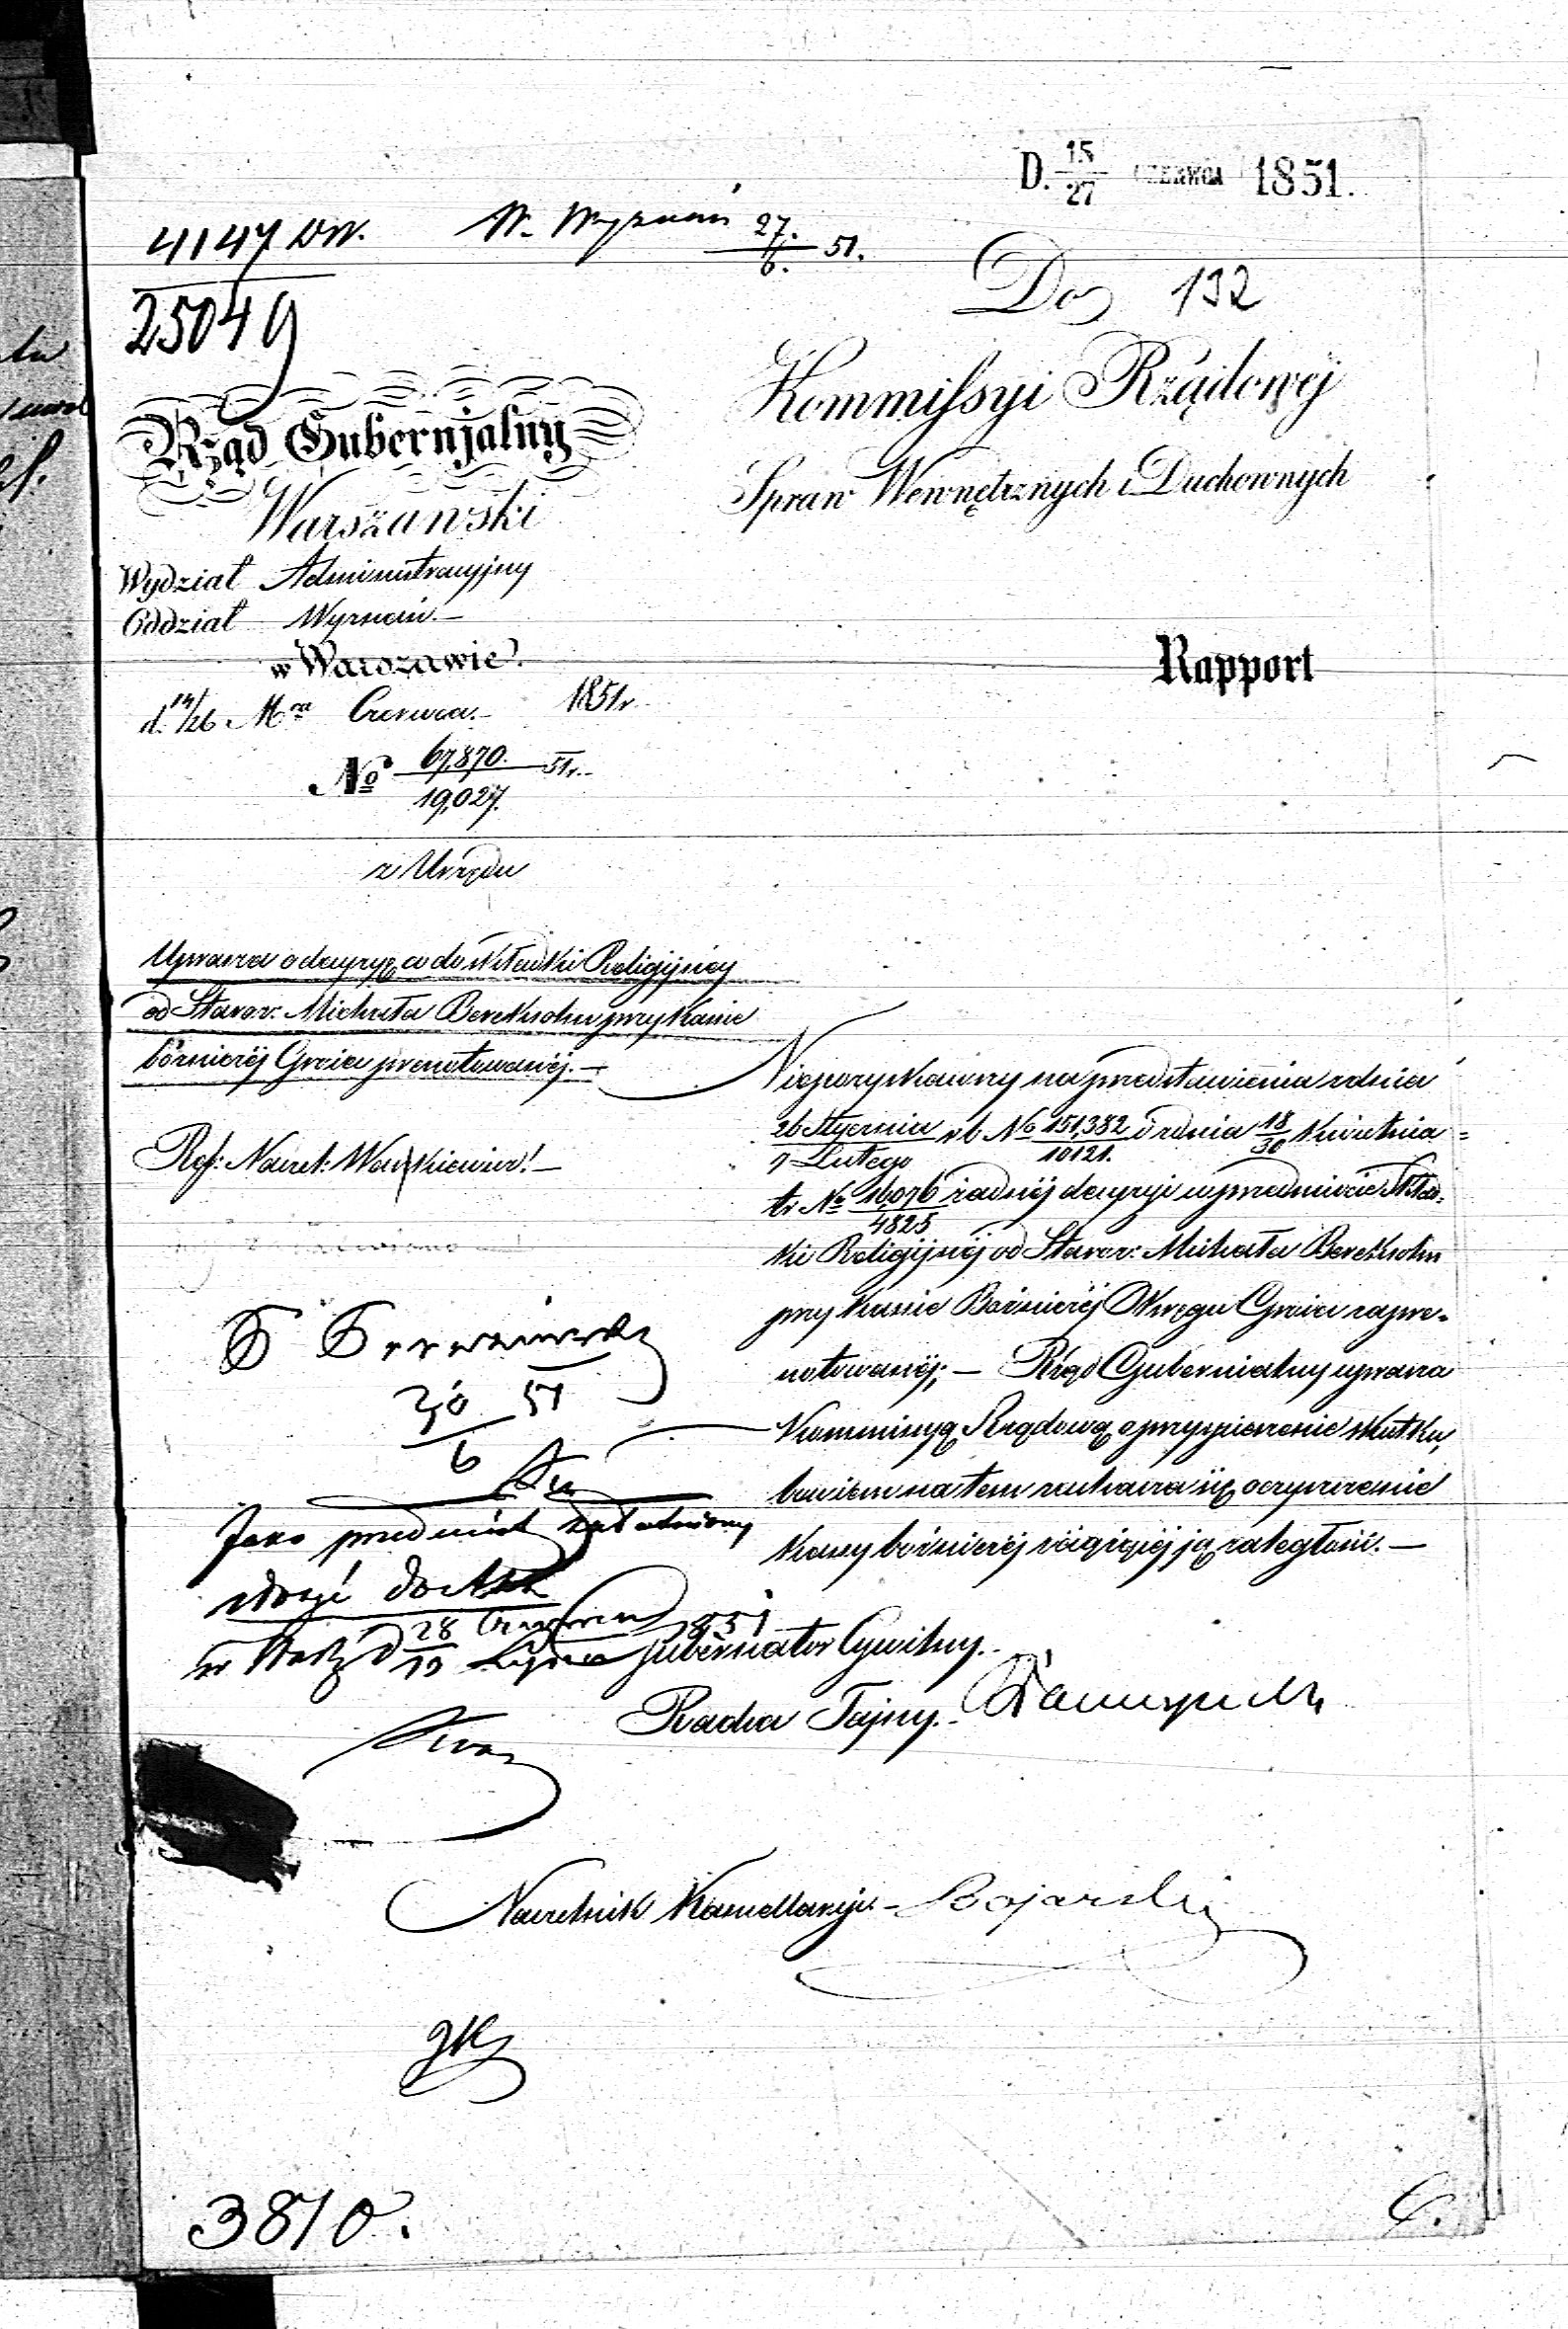 D. 15/27 CZERWCA 1851.
4147 DW. W. Wyznań 27./6. 51.
25049
Do 132
Kommissyi Rządowej
Spraw Wewnętrznych i Duchownych
Rząd Gubernjalny
Warszawski
Wydział Administracyjny
Oddział Wyznań.—
w Warszawie.
d. 14/26 Mca Czerwca.— 1851r.
Rapport
No 67,870./19,027. 51r.
z Urzędu
Uprasza o decyzyę co do składki Religijnej
od Staroz: Michała Bereksohn przy Kasie
bóżniczej Grójca prenotowanej.—
Ref: Naczel:
Niepozyskawszy na przedstawienia z dnia
26 Stycznia/7 Lutego rb No 151,382/10121. i z dnia 18/30 Kwietnia
tr No 16,076/4825 żadnej decyzyi w przedmiocie Skład-
ki Religijnej od Staroz: Michała Bereksohn
przy Kassie Bóżniczej Okręgu Grójca zapre-
notowanej;— Rząd Gubernialny uprasza
Kommissyą Rządową o przyspieszenie skutku,
bowiem na tem
Kassy bóżniczej ciążącej ją zaległości.—
30/6 51
Jako przedmiot załatwiony
złożyć do Akt
w Warsz d 28 Czerwca/10 Lipca 851
Gubernator Cywilny.
Radca Tajny.
Naczelnik Kancellaryi.— Bojarski
3810.